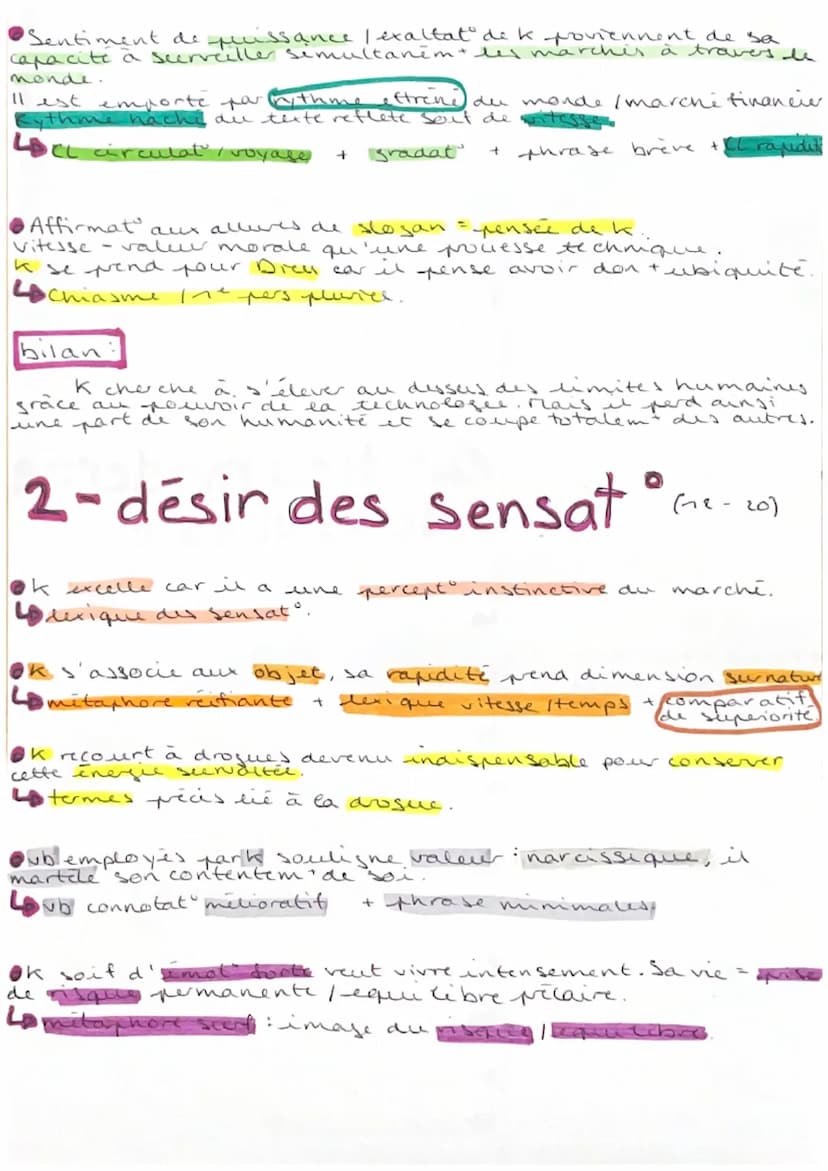 • Sentiment de puissance / exaltat° de k proviennent de sa
capacité à surveiller simultaném^t les marchés à travers le
monde.
Il est emporté par rythme effréné du monde / marché financier
Rythme haché du texte reflète soif de vitesse
↳ CL circulat°/voyage + gradat° + phrase brève + CL rapidit
• Affirmat° aux allures de slogan = pensée de k.
vitesse - valeur morale qu'une prouesse technique.
k se prend pour Dieu car il pense avoir don + ubiquité.
↳ Chiasme / 1e pers pluriel.
bilan :
K cherche à s'élever au dessus des limites humaines
grâce au pouvoir de la technologie. Mais il perd ainsi
une part de son humanité et se coupe totalem^t des autres.
2 - désir des sensat° (12 - 20)
• K excelle car il a une percept° instinctive du marché.
↳ lexique des sensat°.
• K s'associe aux objet, sa rapidité prend dimension surnatur
↳ métaphore réifiante + lexique vitesse /temps + comparatif
de supériorité.
• K recourt à drogues devenu indispensable pour conserver
cette énergie survoltée.
↳ termes précis lié à la drogue.
• vb employés par k souligne valeur : narcissique, il
martèle son contentem^t de soi.
↳ vb connotat° mélioratif + phrase minimales.
• K soif d'émot° forte veut vivre intensement. Sa vie = prise
de risque permanente / equilibre précaire.
↳ métaphore surf : image du risque / equilibre.